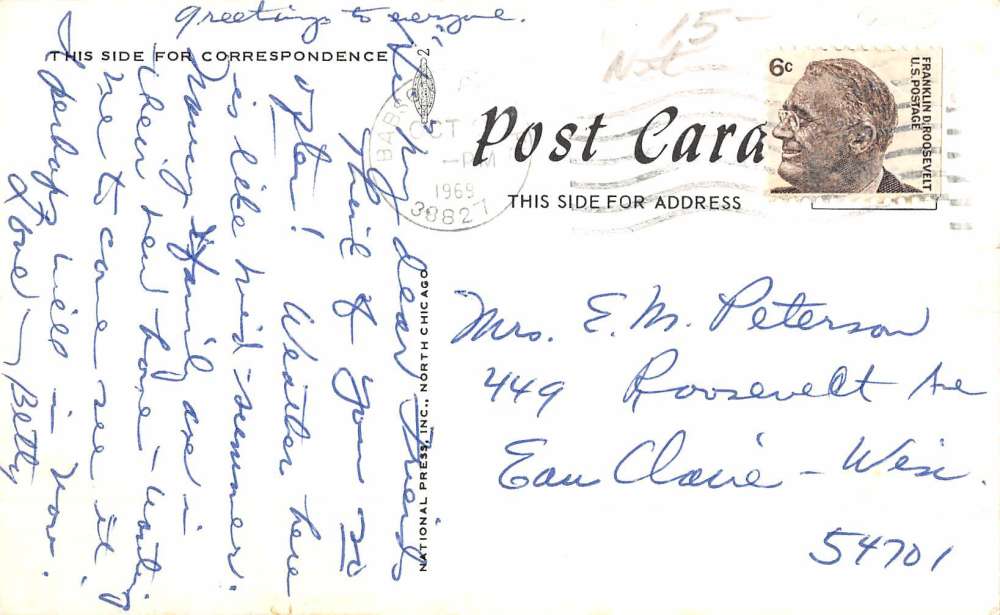 Greetings to everyone.
THIS SIDE FOR CORRESPONDENCE
2
my dear friends
Think of you so
often! Weather here
is like mid-summer.
Nancy & family are in
their new home - wanting
me to come see it
& perhaps will - in Nov.
Love - Betty
NATIONAL PRESS, INC., NORTH CHICAGO
15-
BAB
OCT
-PM
1969
33827
6c
FRANKLIN D. ROOSEVELT
U.S. POSTAGE
Post Card
THIS SIDE FOR ADDRESS
Mrs. E. M. Peterson
449 Roosevelt Ave
Eau Claire - Wisc.
54701